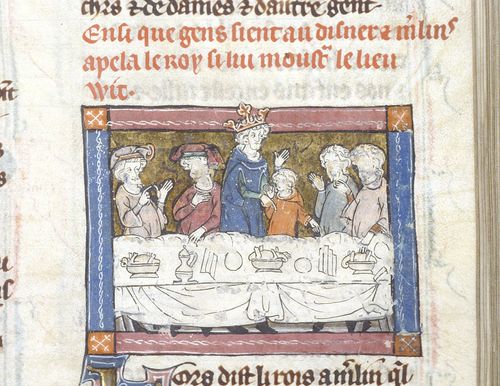 chrs & de dames & dautre gent.
Ensi que gens sient au disner & m̃lins
apela le roy si lui moustͬ le lieu
wit.
Ors dist li rois a m̃lin q̃l